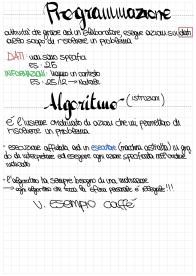 Programmazione
attività che grazie ad un elaboratore esegue azioni su dati
allo scopo di risolvere un problema
DATI: non sono specifici
ES: 25
INFORMAZIONI: in contesto
ES: 25/12 → Natale
Algoritmo - (istruzioni)
È l'insieme ordinato di azioni che mi permettono di
risolvere un problema
esecuzione affidata ad un esecutore (macchina astratta) in gra
do di interpretare ed eseguire ogni azione specificata nell'ordine
indicato
l'algoritmo ha sempre bisogno di una
→ ogni algoritmo che
V. esempio caffè